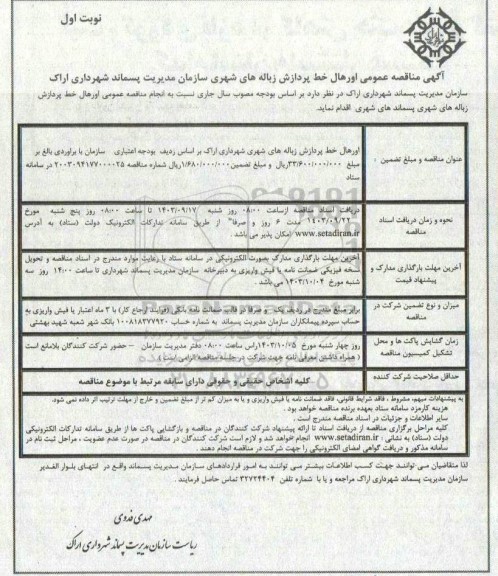 نوبت اول
آگهی مناقصه عمومی اورهال خط پردازش زباله های شهری سازمان مدیریت پسماند شهرداری اراک
سازمان مدیریت پسماند شهرداری اراک در نظر دارد بر اساس بودجه مصوب سال جاری نسبت به انجام مناقصه عمومی اورهال خط پردازش
زباله های شهری پسماند های شهری اقدام نماید.
عنوان مناقصه و مبلغ تضمین :
اورهال خط پردازش زباله های شهری شهرداری اراک بر اساس ردیف بودجه اعتباری سازمان با برآوردی بالغ بر
مبلغ ۳۳/۶۰۰/۰۰۰/۰۰۰ریال و مبلغ تضمین۱/۶۸۰/۰۰۰/۰۰۰ریال شماره مناقصه ۲۰۰۳۰۹۴۱۷۷۰۰۰۰۲۵ در سامانه
ستاد
نحوه و زمان دریافت اسناد
مناقصه
دریافت اسناد مناقصه ازساعت ۰۸:۰۰ روز شنبه ۱۴۰۳/۰۹/۱۷ تا ساعت ۰۸:۰۰ روز پنج شنبه مورخ
۱۴۰۳/۰۹/۲۲ مدت ۶ روز و صرفا" از طریق سامانه تدارکات الکترونیک دولت (ستاد) به آدرس
www.setadiran.ir امکان پذیر می باشد .
آخرین مهلت بارگذاری مدارک و
پیشنهاد قیمت
آخرین مهلت بارگذاری مدارک بصورت الکترونیکی در سامانه ستاد با رعایت موارد مندرج در اسناد مناقصه و تحویل
نسخه فیزیکی ضمانت نامه یا فیش واریزی به دبیرخانه سازمان مدیریت پسماند شهرداری تا ساعت ۱۴:۰۰ روز سه
شنبه مورخ ۱۴۰۳/۱۰/۰۴ می باشد .
میزان و نوع تضمین شرکت در
مناقصه
برابر مبلغ مندرج در ردیف یک و صرفا در قالب ضمانت نامه بانکی (فرآیند ارجاع کار) با ۳ ماه اعتبار یا فیش واریزی به
حساب سپرده پیمانکاران سازمان مدیریت پسماند به شماره حساب ۱۰۰۸۱۸۳۷۷۹۲۰ بانک شهر شعبه شهید بهشتی
زمان گشایش پاکت ها و محل
تشکیل کمیسیون مناقصه
روز چهار شنبه مورخ ۱۴۰۳/۱۰/۰۵راس ساعت ۰۸:۰۰ دفتر مدیریت سازمان – حضور شرکت کنندگان بلامانع است
( همراه داشتن معرفی نامه جهت شرکت در جلسه مناقصه الزامی است ).
حداقل صلاحیت شرکت کننده
کلیه اشخاص حقیقی و حقوقی دارای سابقه مرتبط با موضوع مناقصه
به پیشنهادات مبهم، مشروط ، فاقد شرایط قانونی، فاقد ضمانت نامه یا فیش واریزی و یا به میزان کم تر از مبلغ تضمین و خارج از مهلت ترتیب اثر داده نمی شود.
هزینه کارمزد سامانه ستاد بعهده برنده مناقصه خواهد بود .
سایر اطلاعات و جزئیات در اسناد مناقصه مندرج است .
کلیه مراحل برگزاری مناقصه از دریافت اسناد تا ارائه پیشنهاد شرکت کنندگان در مناقصه و بازگشایی پاکت ها از طریق سامانه تدارکات الکترونیکی
دولت (ستاد) به نشانی : www.setadiran.ir انجام خواهد شد و لازم است شرکت کنندگان در مناقصه در صورت عدم عضویت ، مراحل ثبت نام در
سامانه مذکور و دریافت گواهی امضای الکترونیکی را جهت شرکت در مناقصه انجام دهند .
لذا متقاضیان می توانند جهت کسب اطلاعات بیشتر می توانند به امور قراردادهای سازمان مدیریت پسماند واقع در انتهای بلوار الغدیر
سازمان مدیریت پسماند شهرداری اراک مراجعه و یا با شماره تلفن ۳۲۷۲۴۴۰۴ تماس حاصل فرمایند .
مهدی فدوی
ریاست سازمان مدیریت پسماند شهرداری اراک